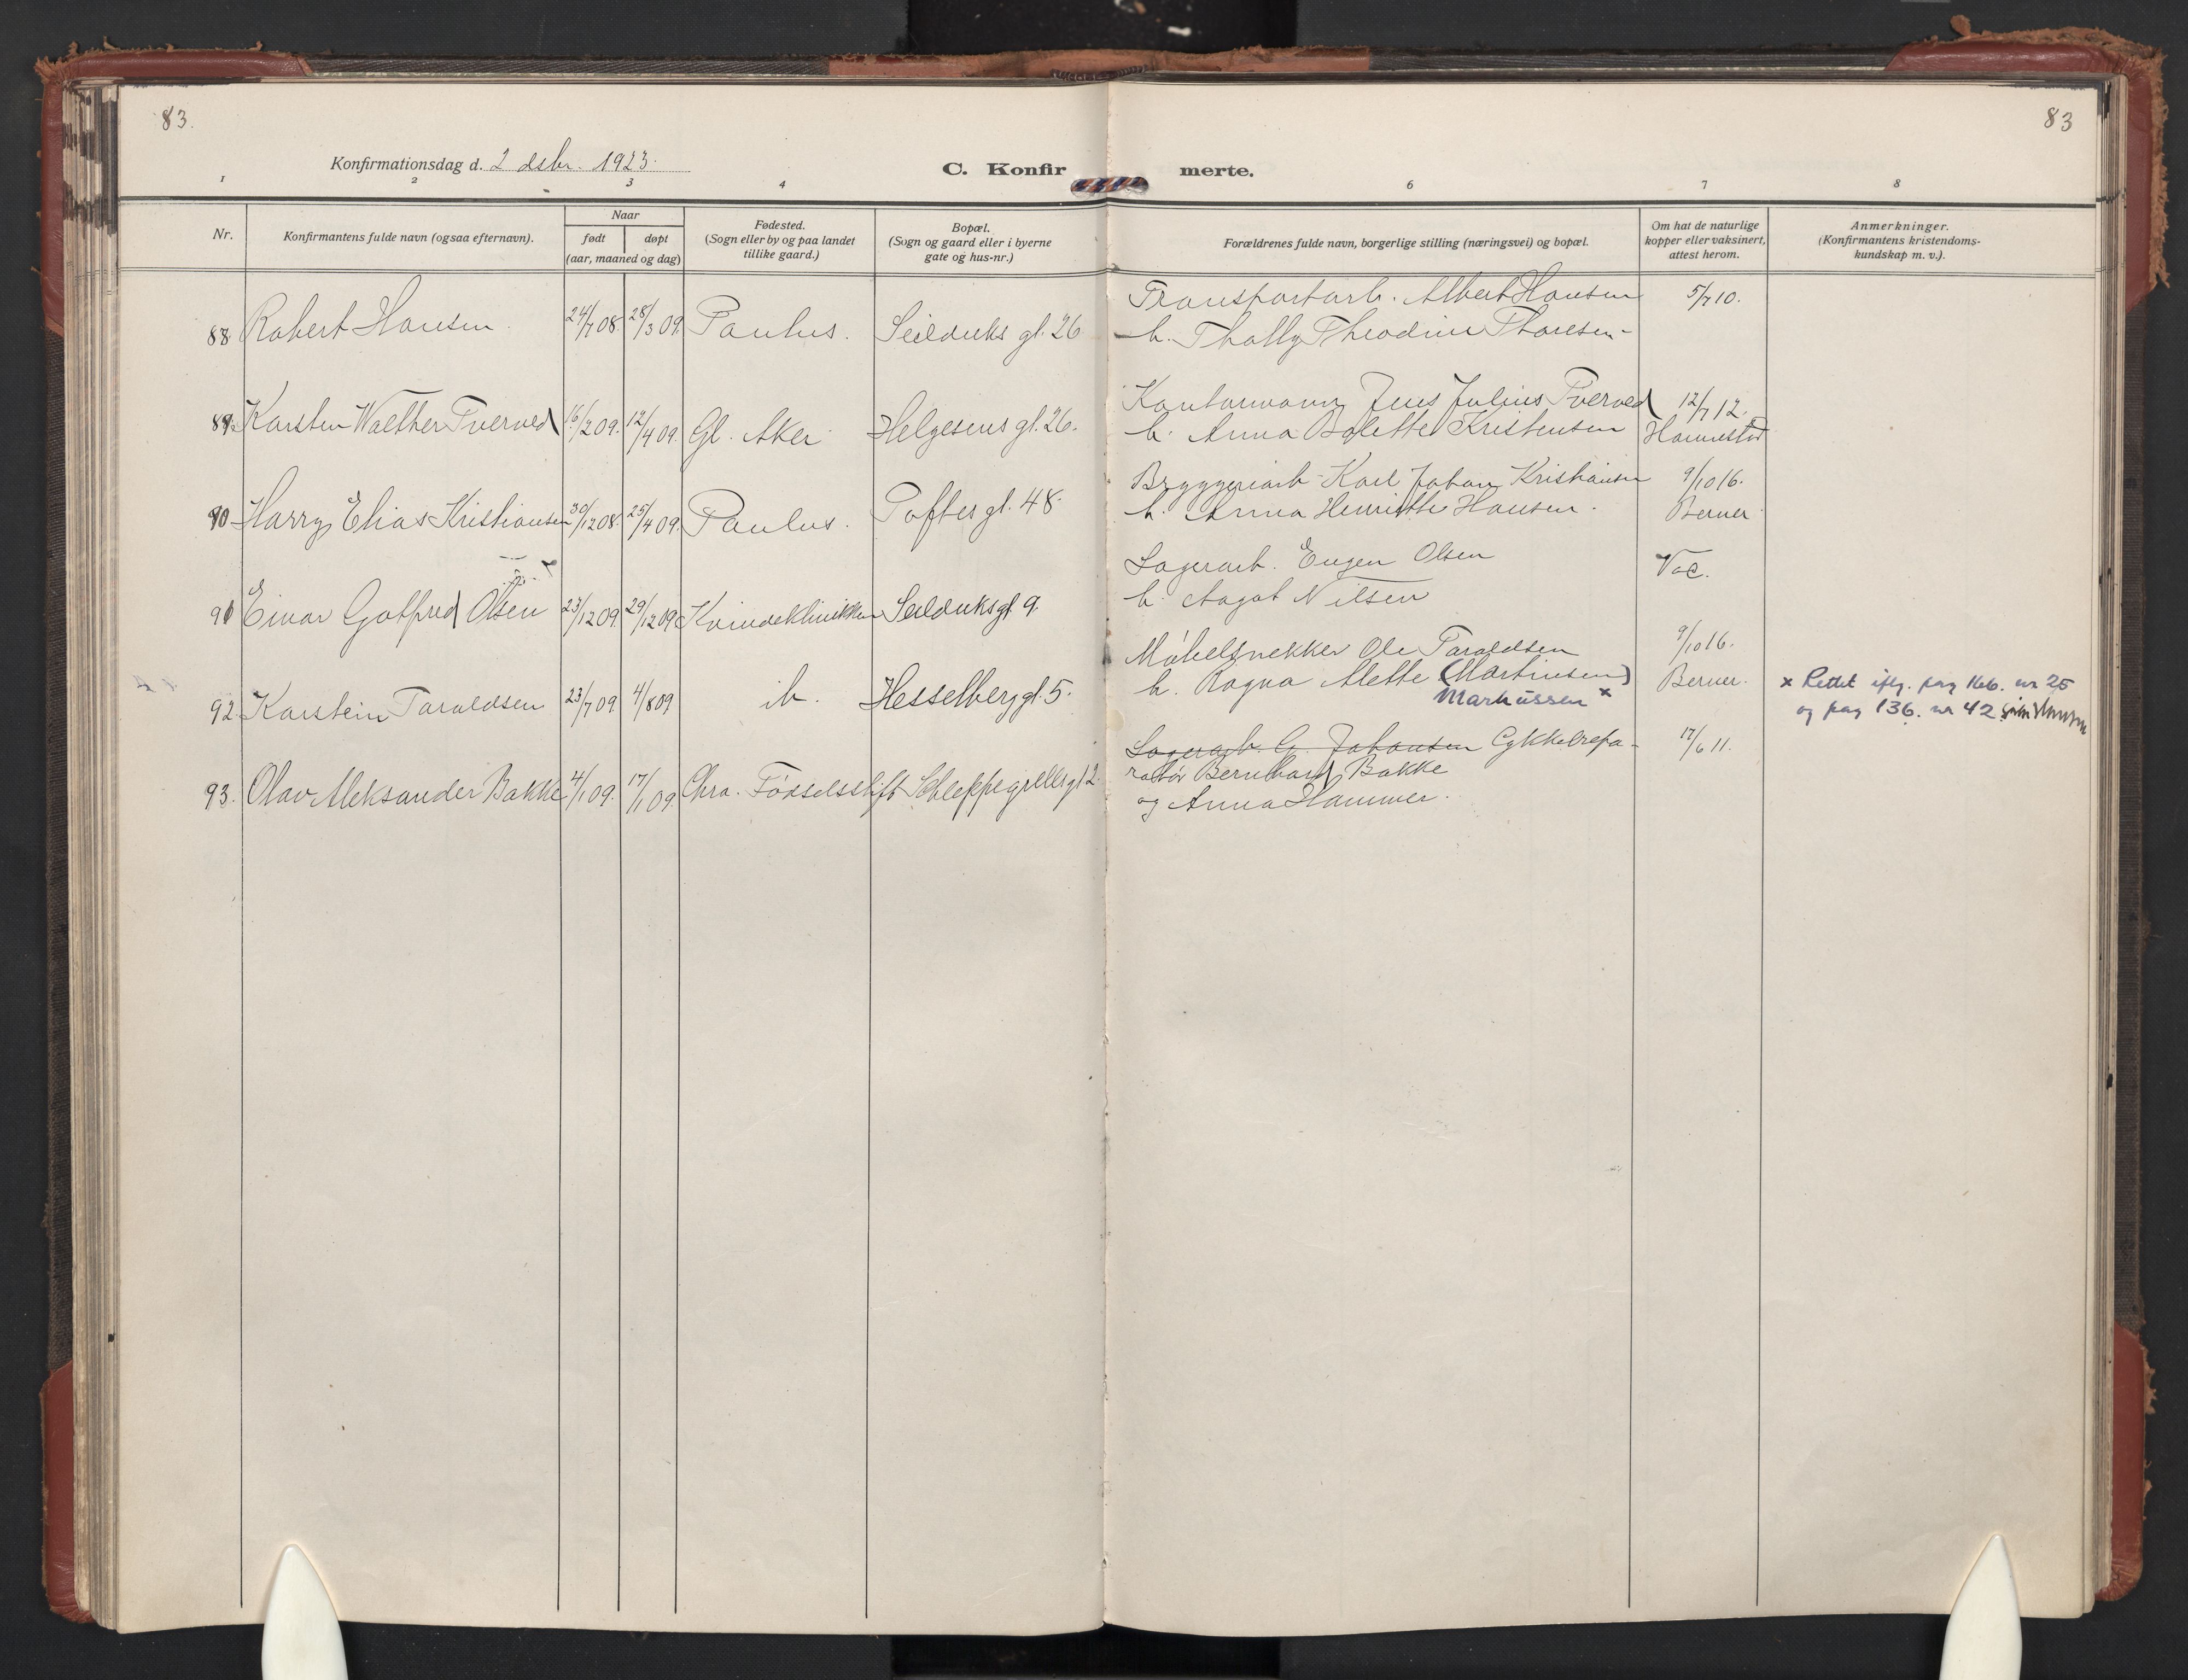 83.
83
Konfirmationsdag d. 2 desbr. 1923.
C. Konfirmerte.
1 2 3 4 6 7 8
Nr.
Konfirmantens fulde navn (ogsaa efternavn).
Naar
født døpt
(aar, maaned og dag)
Fødested.
(Sogn eller by og paa landet
tillike gaard.)
Bopæl.
(Sogn og gaard eller i byerne
gate og hus-nr.)
Forældrenes fulde navn, borgerlige stilling (næringsvei) og bopæl.
Om hat de naturlige
kopper eller vaksinert,
attest herom.
Anmerkninger.
(Konfirmantens kristendoms-
kundskap m. v.).
88. Robert Hansen 24/7 08. 28/3 09. Paulus. Seilduks gt. 26
Transportarb. Albert Hansen 5/7 10.
h. Tholly Theodine Thoresen
89. Karsten Walther Tverved 16/2 09. 12/4 09. Gl. Aker Helgesens gt. 26.
Kontormann Jens Julius Tverved 12/7 12.
h. Anna Bolette Kristensen
90 Harry Elias Kristiansen 30/12 08. 25/4 09. Paulus. Toftes gt. 48
Bryggeriarb. Karl Johan Kristiansen 9/10 16.
h. Anna Henriette Hansen. Berner
91 Einar Gotfred Olsen 23/12 09. 29/12 09 Kvindeklinikken Seilduksgt. 9.
Lagerarb. Eugen Olsen Vac.
h. Aagot Nilsen
92. Karstein Taraldsen 23/7 09. 4/8 09 ib. Hesselberg gt. 5.
Møbelsnekker Ole Taraldsen 9/10 16.
h. Ragna Alette (Martinsen) Berner.
Markussen x
x Rettet iflg. pag 166. nr 25
og pag 136. nr 42
93. Olav Aleksander Bakke 4/1 09. 17/1 09 Chra. Fødselsstift Schleppegrellsgt 2.
Lagerarb. G. Johansen Cykkelrepa- 17/6 11.
ratør Bernhard Bakke
og Anna Hammer.